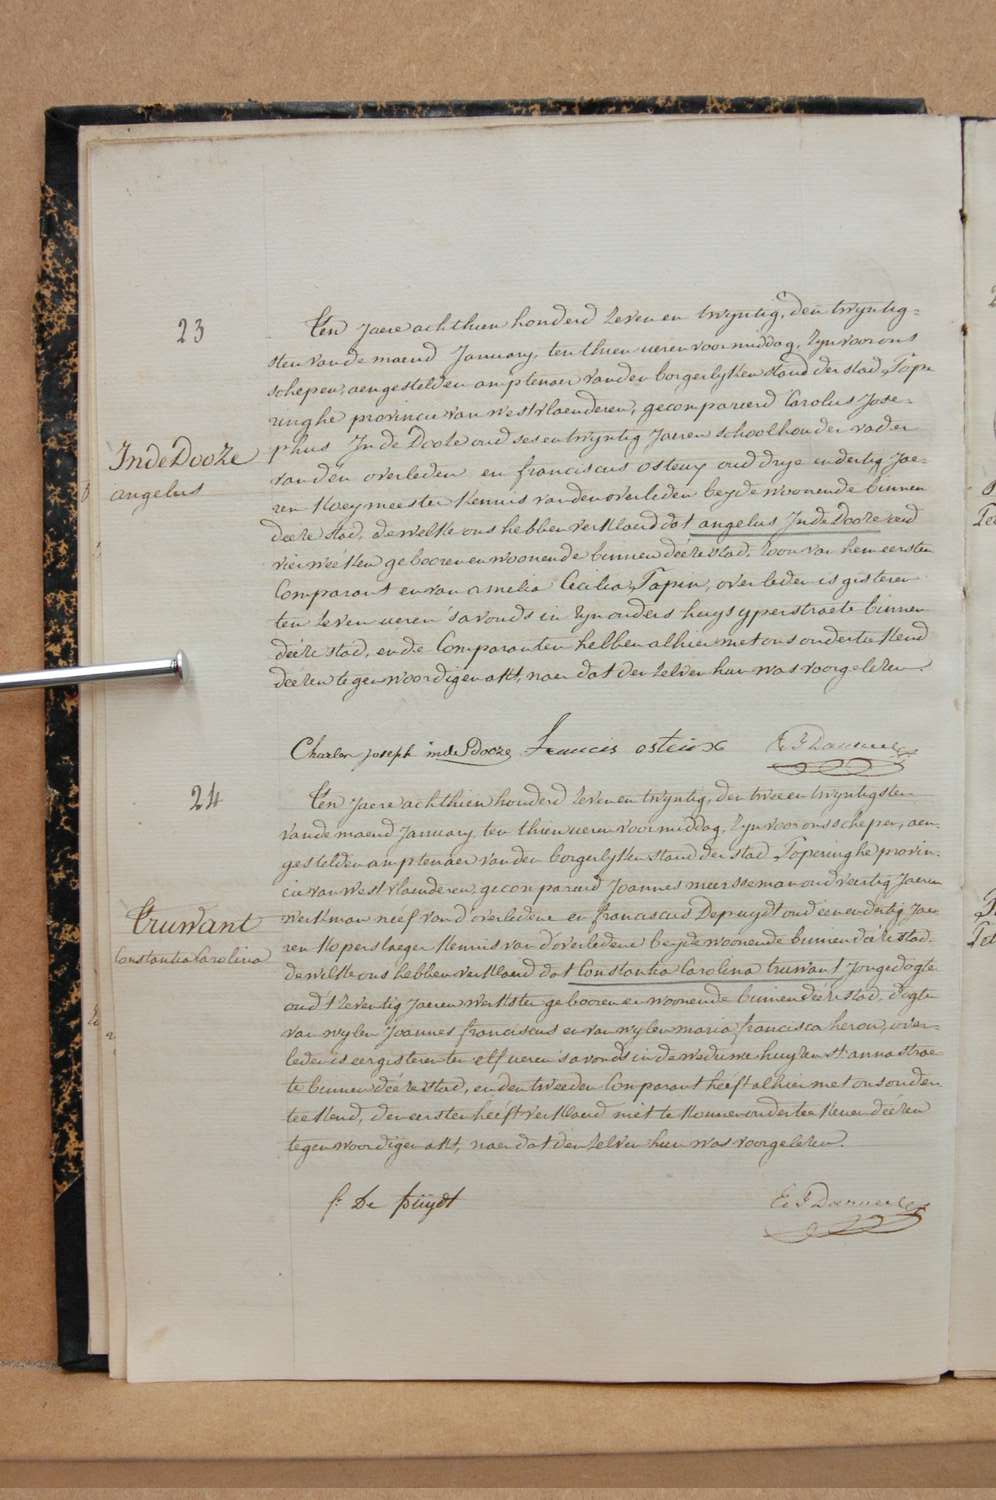 23
Ten Jaere achthien honderd zeven en twyntig, den twyntig=
sten van de maend January, ten thien ueren voormiddag, Zyn voor ons
schepen, aengestelden amptenaer van den borgerlyken stand der stad Pope
ringhe provincie van Westvlaenderen, gecompareerd Carolus Jose=
phus InDe Dooze oud sesentwyntig Jaeren schoolhouder vader
InDeDooze
van den overleden en franciscus osteux oud drye en dertig Jae=
angelus
ren Koeymeester Kennis van den overleden beyde woonende binnen
deeze stad, dewelke ons hebben verklaerd dat angelus InDe Dooze oud
vier weéken gebooren en woonende binnen deéze stad, zoon van hem eersten
Comparant en van amelia Cecilia Tapin, overleden is gisteren
ten zeven ueren s'avonds in zyn ouders huys yperstraete binnen
deéze stad, en die Comparanten hebben alhier met ons onderteekend
deezen tegenwoordigen akt, naer dat den zelven hun was voorgelezen.
Charles joseph indeDooze francis osteux
24
Ten Jaere achthien honderd zeven en twyntig, den twee en twyntigsten
van de maend January, ten thien ueren voormiddag, Zyn voor ons schepen, aen=
gestelden amptenaer van den borgerlyken stand der stad Poperinghe provin=
cie van Westvlaenderen, gecompareerd Joannes meersseman oud veertig Jaeren
werkman néef van d'overledene en franciscus Depuydt oud een en dertig Jae=
Truwant
ren Koperslaeger Kennis van d'overledene beyde woonende binnen deéze stad.
Constantia Carolina
dewelke ons hebben verklaerd dat Constantia Carolina truwant Jongedogter
oud t'zeventig Jaeren werkster gebooren en woonende binnen deéze stad, dogter
van wylen Joannes franciscus en van wylen maria francisca herou, over=
leden is eergisteren ten elf ueren s'avonds in de weduwe huyzen st annastrae=
te binnen deéze stad, en den tweeden Comparant heéft alhier met ons onder
teekend, den eersten heéft verklaerd niet te Konnen onderteekenen deézen
tegenwoordigen akt, naer dat den zelven hun was voorgelezen.
f: De puÿdt